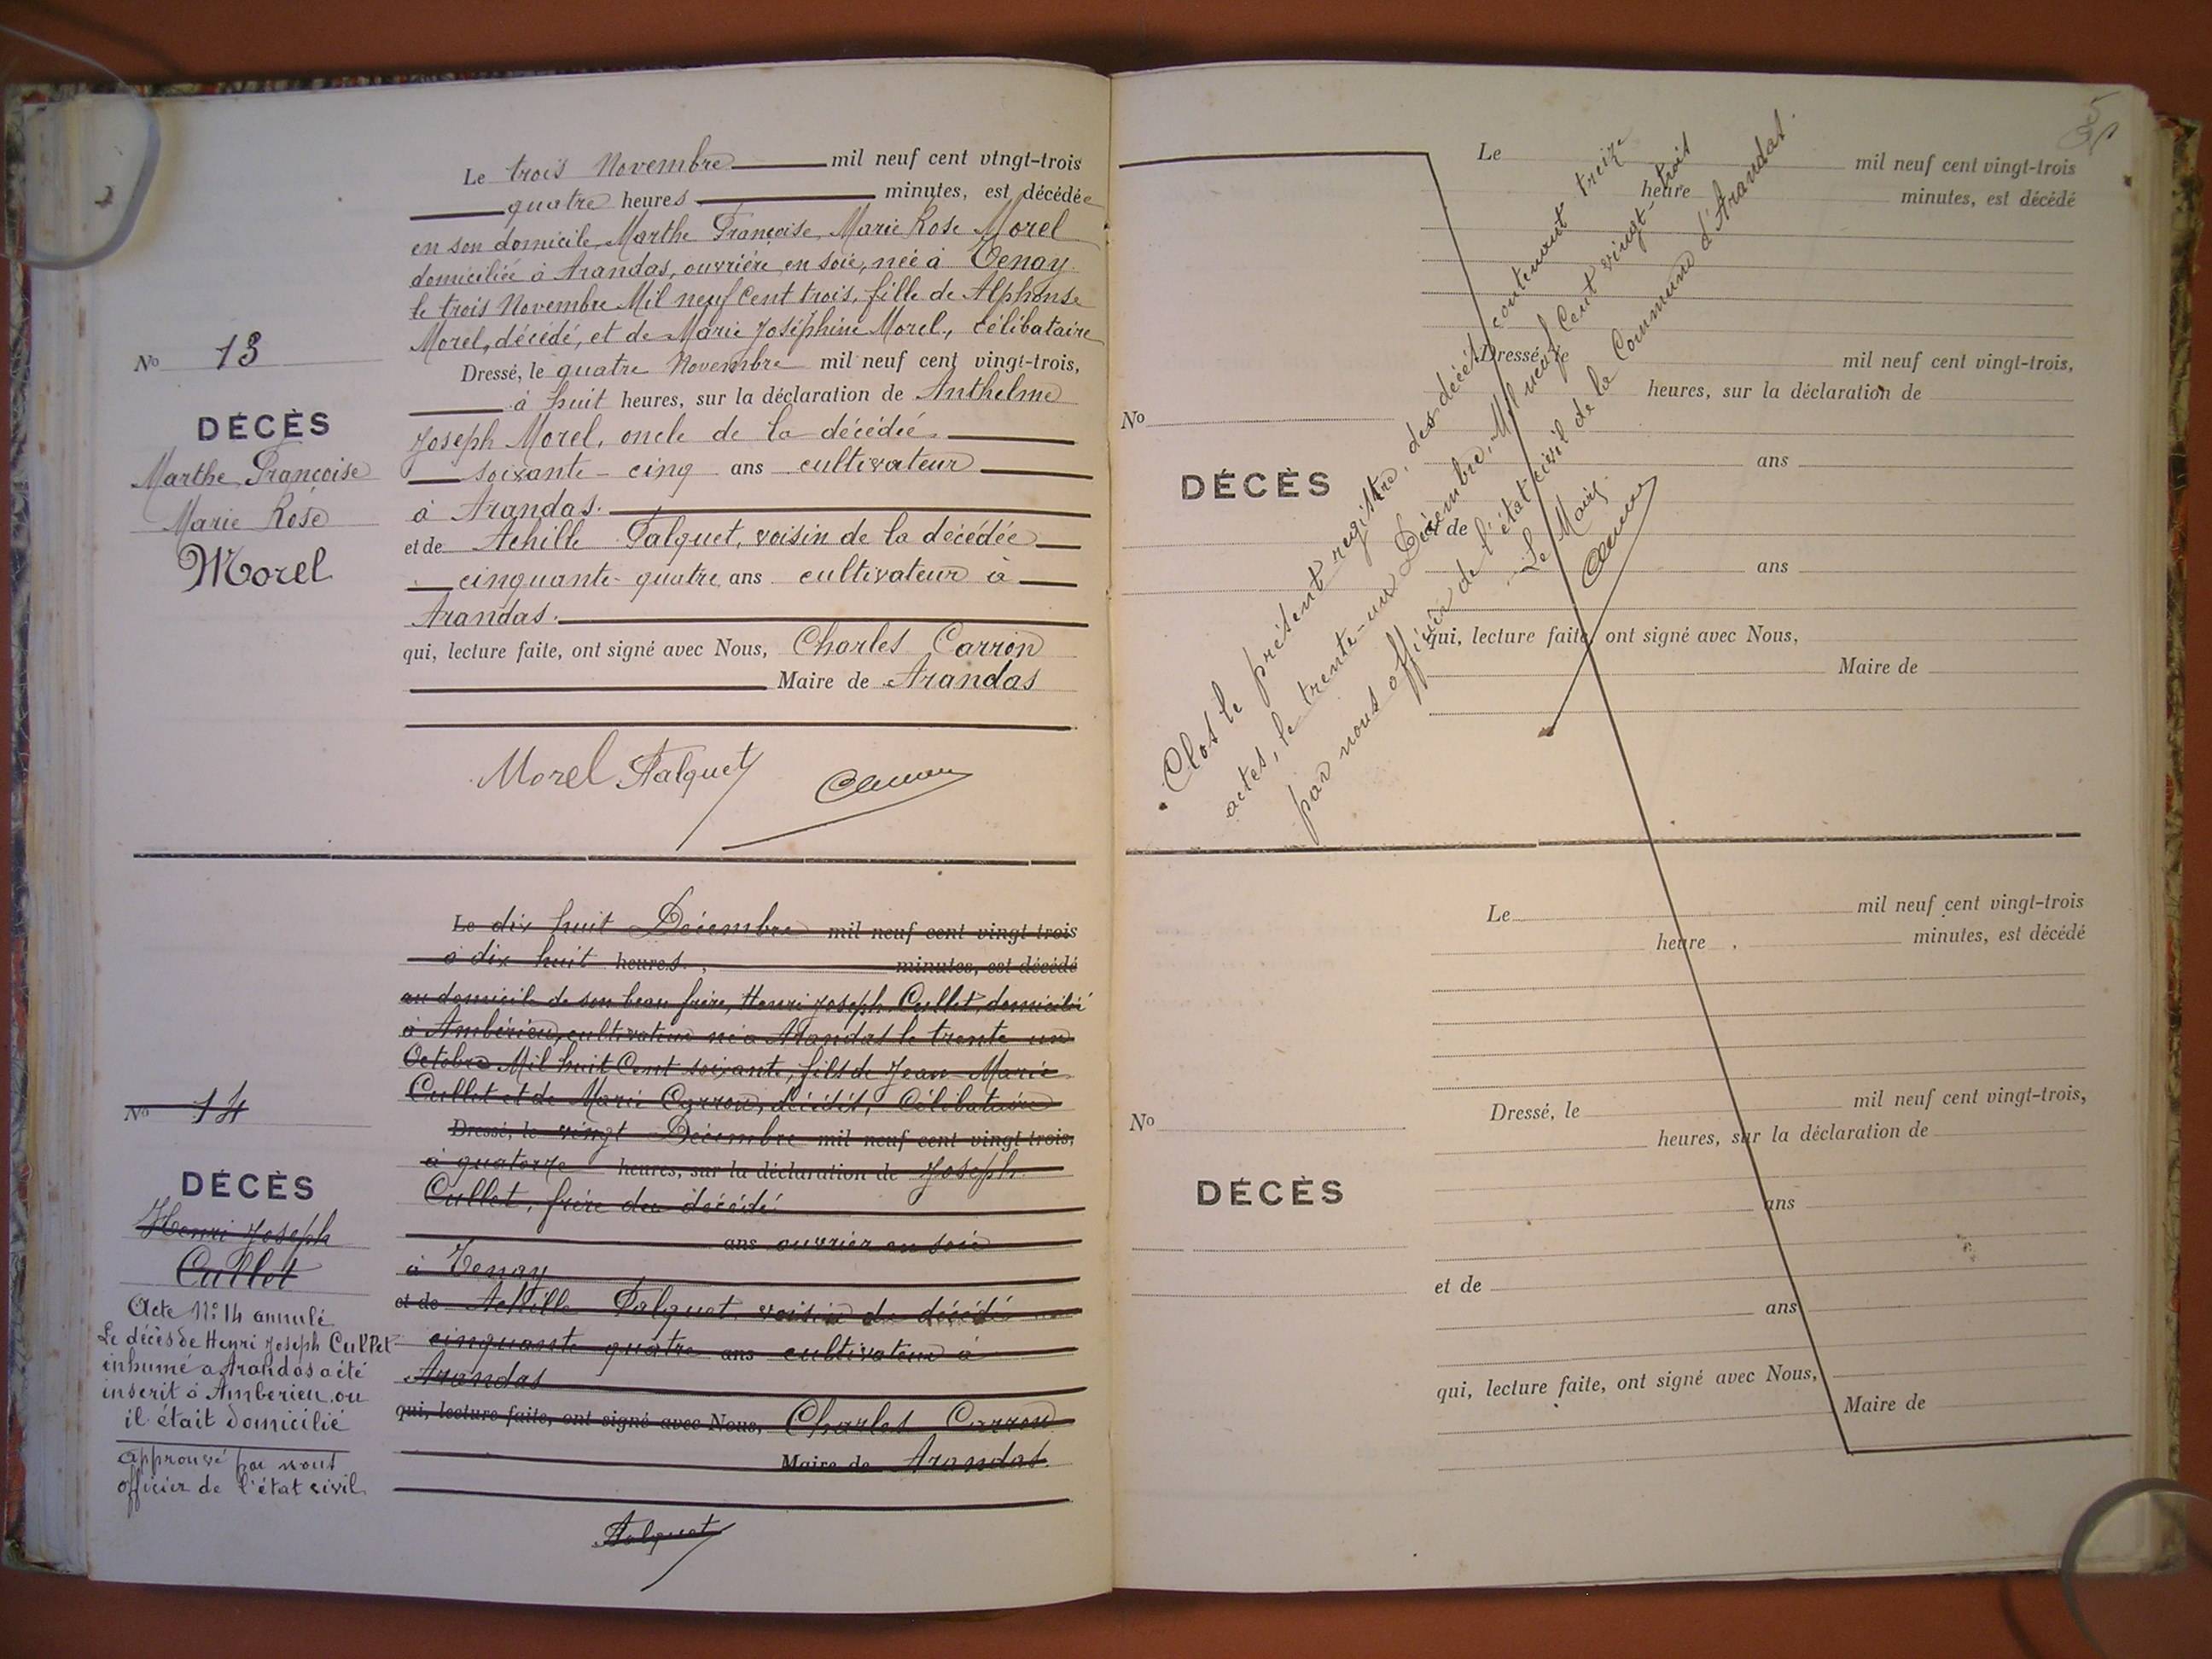 Le trois Novembre mil neuf cent vingt-trois
quatre heures minutes, est décédée
en son domicile, Marthe Françoise, Marie Rose Morel
domiciliée à Arandas, ouvrière en soie, née à Tenay
le trois Novembre Mil neuf Cent trois, fille de Alphonse
Morel, décédé, et de Marie Joséphine Morel, célibataire
Dressé, le quatre Novembre mil neuf cent vingt-trois,
à huit heures, sur la déclaration de Anthelme
Joseph Morel, oncle de la décédée.
soixante-cinq ans cultivateur
à Arandas.
et de Achille Falquet, voisin de la décédée
cinquante-quatre ans cultivateur à
Arandas.
qui, lecture faite, ont signé avec Nous, Charles Carron
Maire de Arandas
No 13
DÉCÈS
Marthe Françoise
Marie Rose
Morel
Morel Falquet
Le dix huit Décembre mil neuf cent vingt-trois
à dix huit heures, minutes, est décédé
au domicile de son beau frère, Henri Joseph Cullet, domicilié
à Ambérieu, cultivateur né à Arandas le trente un
Octobre Mil huit Cent soixante, fils de Jean Marie
Cullet et de Marie Carron, décédés, Célibataire
Dressé, le vingt Décembre mil neuf cent vingt-trois,
à quatorze heures, sur la déclaration de Joseph
Cullet, frère du décédé
ans ouvrier en soie
à Tenay
et de Achille Falquet voisin du décédé
cinquante quatre ans cultivateur à
Arandas
qui, lecture faite, ont signé avec Nous, Charles Carron
Maire de Arandas.
No 14
DÉCÈS
Henri Joseph
Cullet
Acte No 14 annulé
Le décès de Henri Joseph Cullet
inhumé a Arandas a été
inscrit à Amberieu ou
il était domicilié
approuvé par nous
officier de l'état civil
Falquet
Le mil neuf cent vingt-trois
heure minutes, est décédé
Dressé, le mil neuf cent vingt-trois,
heures, sur la déclaration de
No
DÉCÈS
ans
et de
ans
qui, lecture faite, ont signé avec Nous,
Maire de
Clos le présent registre, des décès contenant treize
actes, le trente-un Décembre, Mil neuf Cent vingt-trois
par nous officier de l'état civil de la Commune d'Arandas.
Le Maire
Le mil neuf cent vingt-trois
heure minutes, est décédé
Dressé, le mil neuf cent vingt-trois,
heures, sur la déclaration de
No
DÉCÈS
ans
et de
ans
qui, lecture faite, ont signé avec Nous,
Maire de